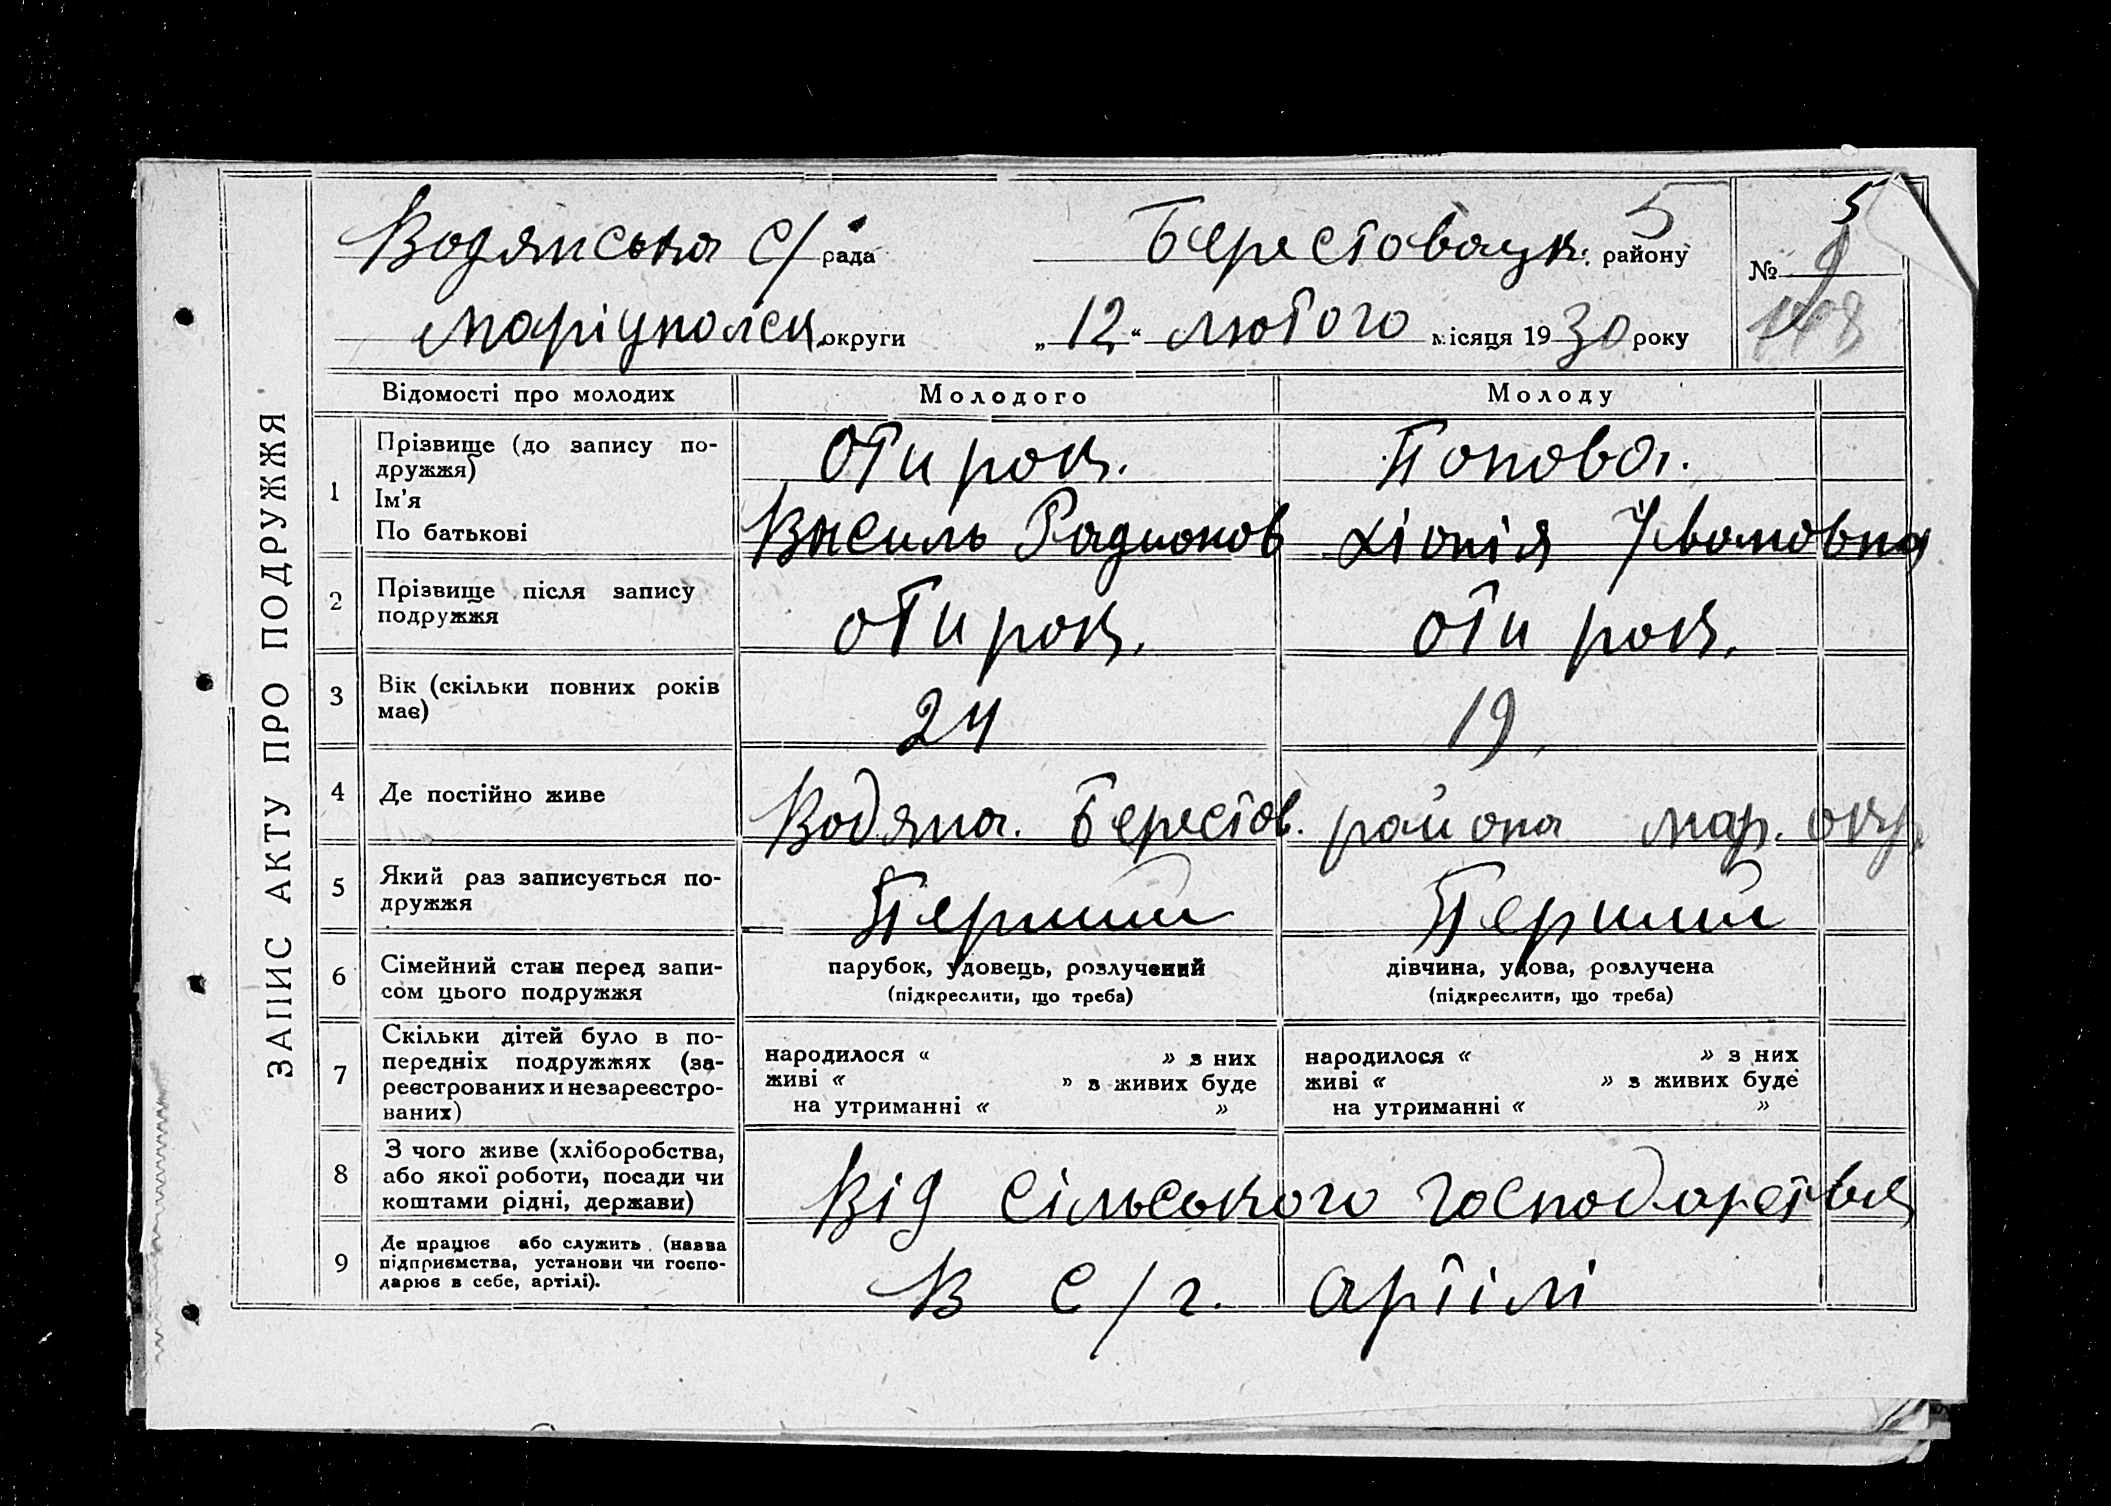 ЗАПИС АКТУ ПРО ПОДРУЖЖЯ
Водянська с/рада Берестовацк. району 5
№ 9 5
Маріуполск. округи „12“ лютого місяця 1930 року
Відомості про молодих Молодого Молоду
1 Прізвище (до запису по-
дружжя) Отирок. Попова.
Ім'я
По батькові Василь Радионов Хіонія Івановна
2 Прізвище після запису
подружжя Отирок. Отирок.
3 Вік (скільки повних років
має) 24 19
4 Де постійно живе Водяна. Берестов. района мар. окр.
5 Який раз записується по-
дружжя Перший Перший
6 Сімейний стан перед запи-
сом цього подружжя
парубок, удовець, розлучений дівчина, удова, розлучена
(підкреслити, що треба) (підкреслити, що треба)
7 Скільки дітей було в по-
передніх подружжях (за-
реєстрованих и незареєстро-
ваних)
народилося « » з них народилося « » з них
живі « » з живих буде живі « » з живих буде
на утриманні « » на утриманні « »
8 З чого живе (хліборобства,
або якої роботи, посади чи
коштами рідні, держави) Від сільського господарства
9 Де працює або служить (назва
підприємства, установи чи госпо-
дарює в себе, артілі). В с/г. артілі